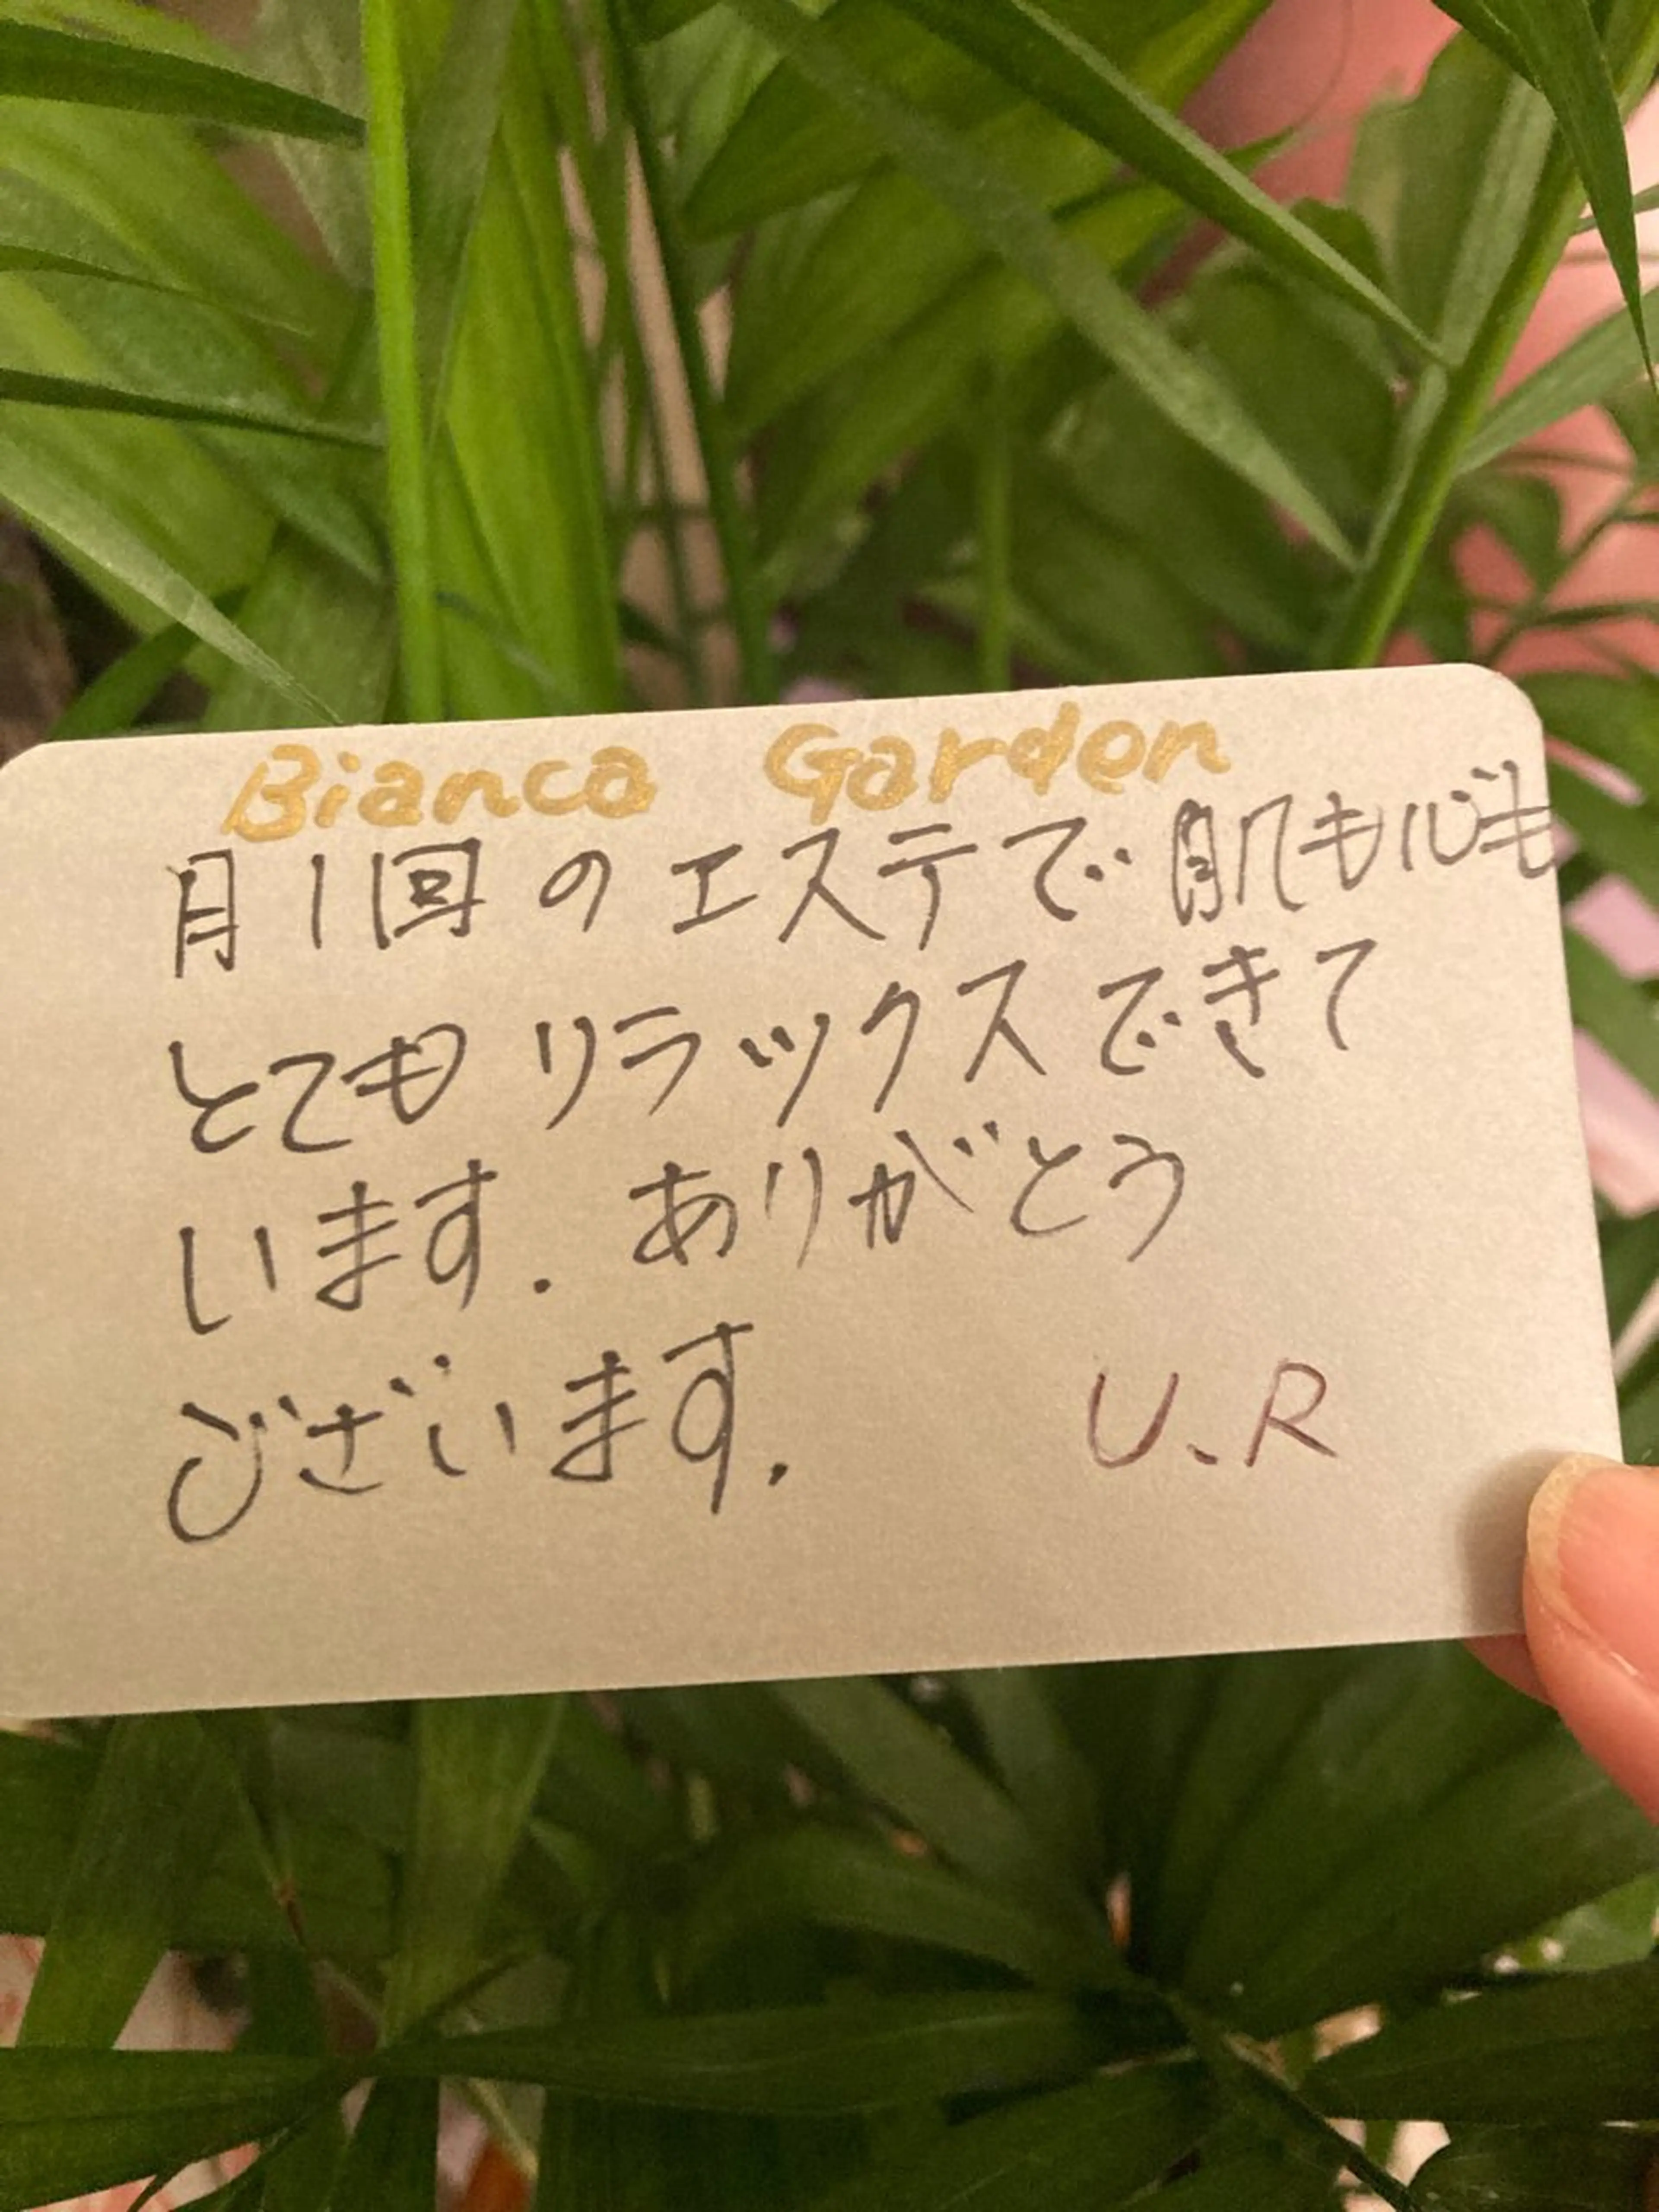 Bianca Garden
月1回のエステで肌も心も
とてもリラックスできて
います. ありがとう
ございます. U.R